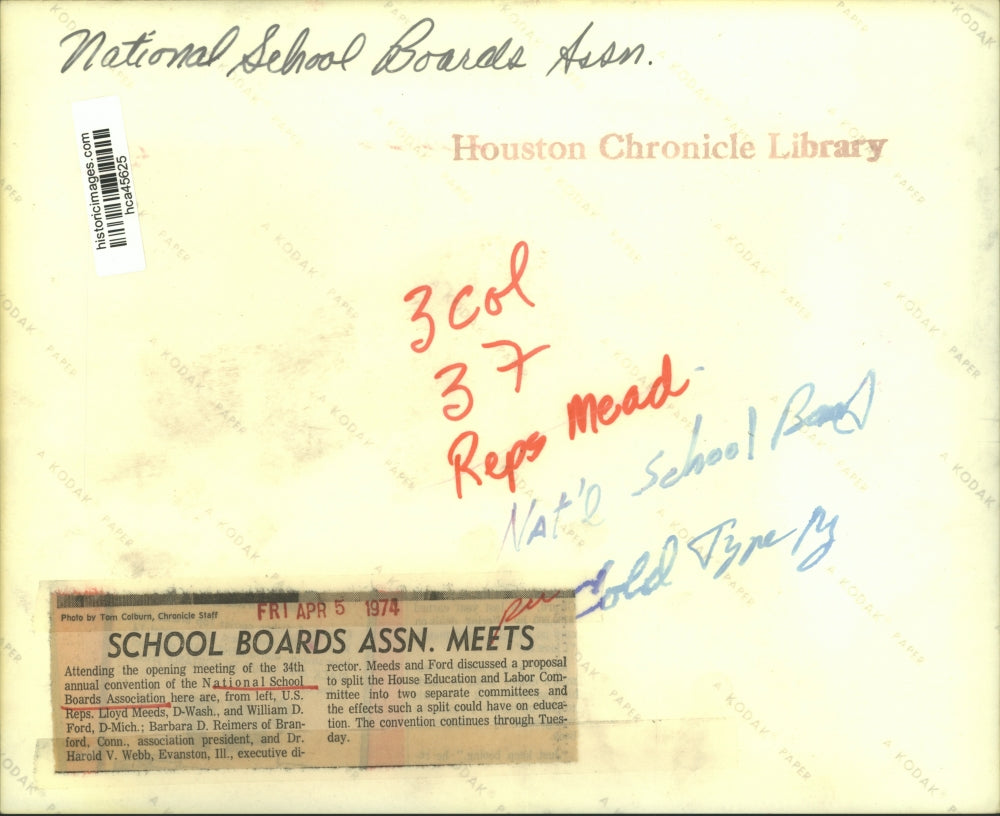 National School Boards Assn.
historicimages.com
hca45625
Houston Chronicle Library
3 col
37
Reps Mead
Nat'l School Board
Cold Type Pg
Photo by Tom Colburn, Chronicle Staff
FRI APR 5 1974
SCHOOL BOARDS ASSN. MEETS
Attending the opening meeting of the 34th
annual convention of the National School
Boards Association here are, from left, U.S.
Reps. Lloyd Meeds, D-Wash., and William D.
Ford, D-Mich.; Barbara D. Reimers of Bran-
ford, Conn., association president, and Dr.
Harold V. Webb, Evanston, Ill., executive di-
rector. Meeds and Ford discussed a proposal
to split the House Education and Labor Com-
mittee into two separate committees and
the effects such a split could have on educa-
tion. The convention continues through Tues-
day.
A KODAK PAPER